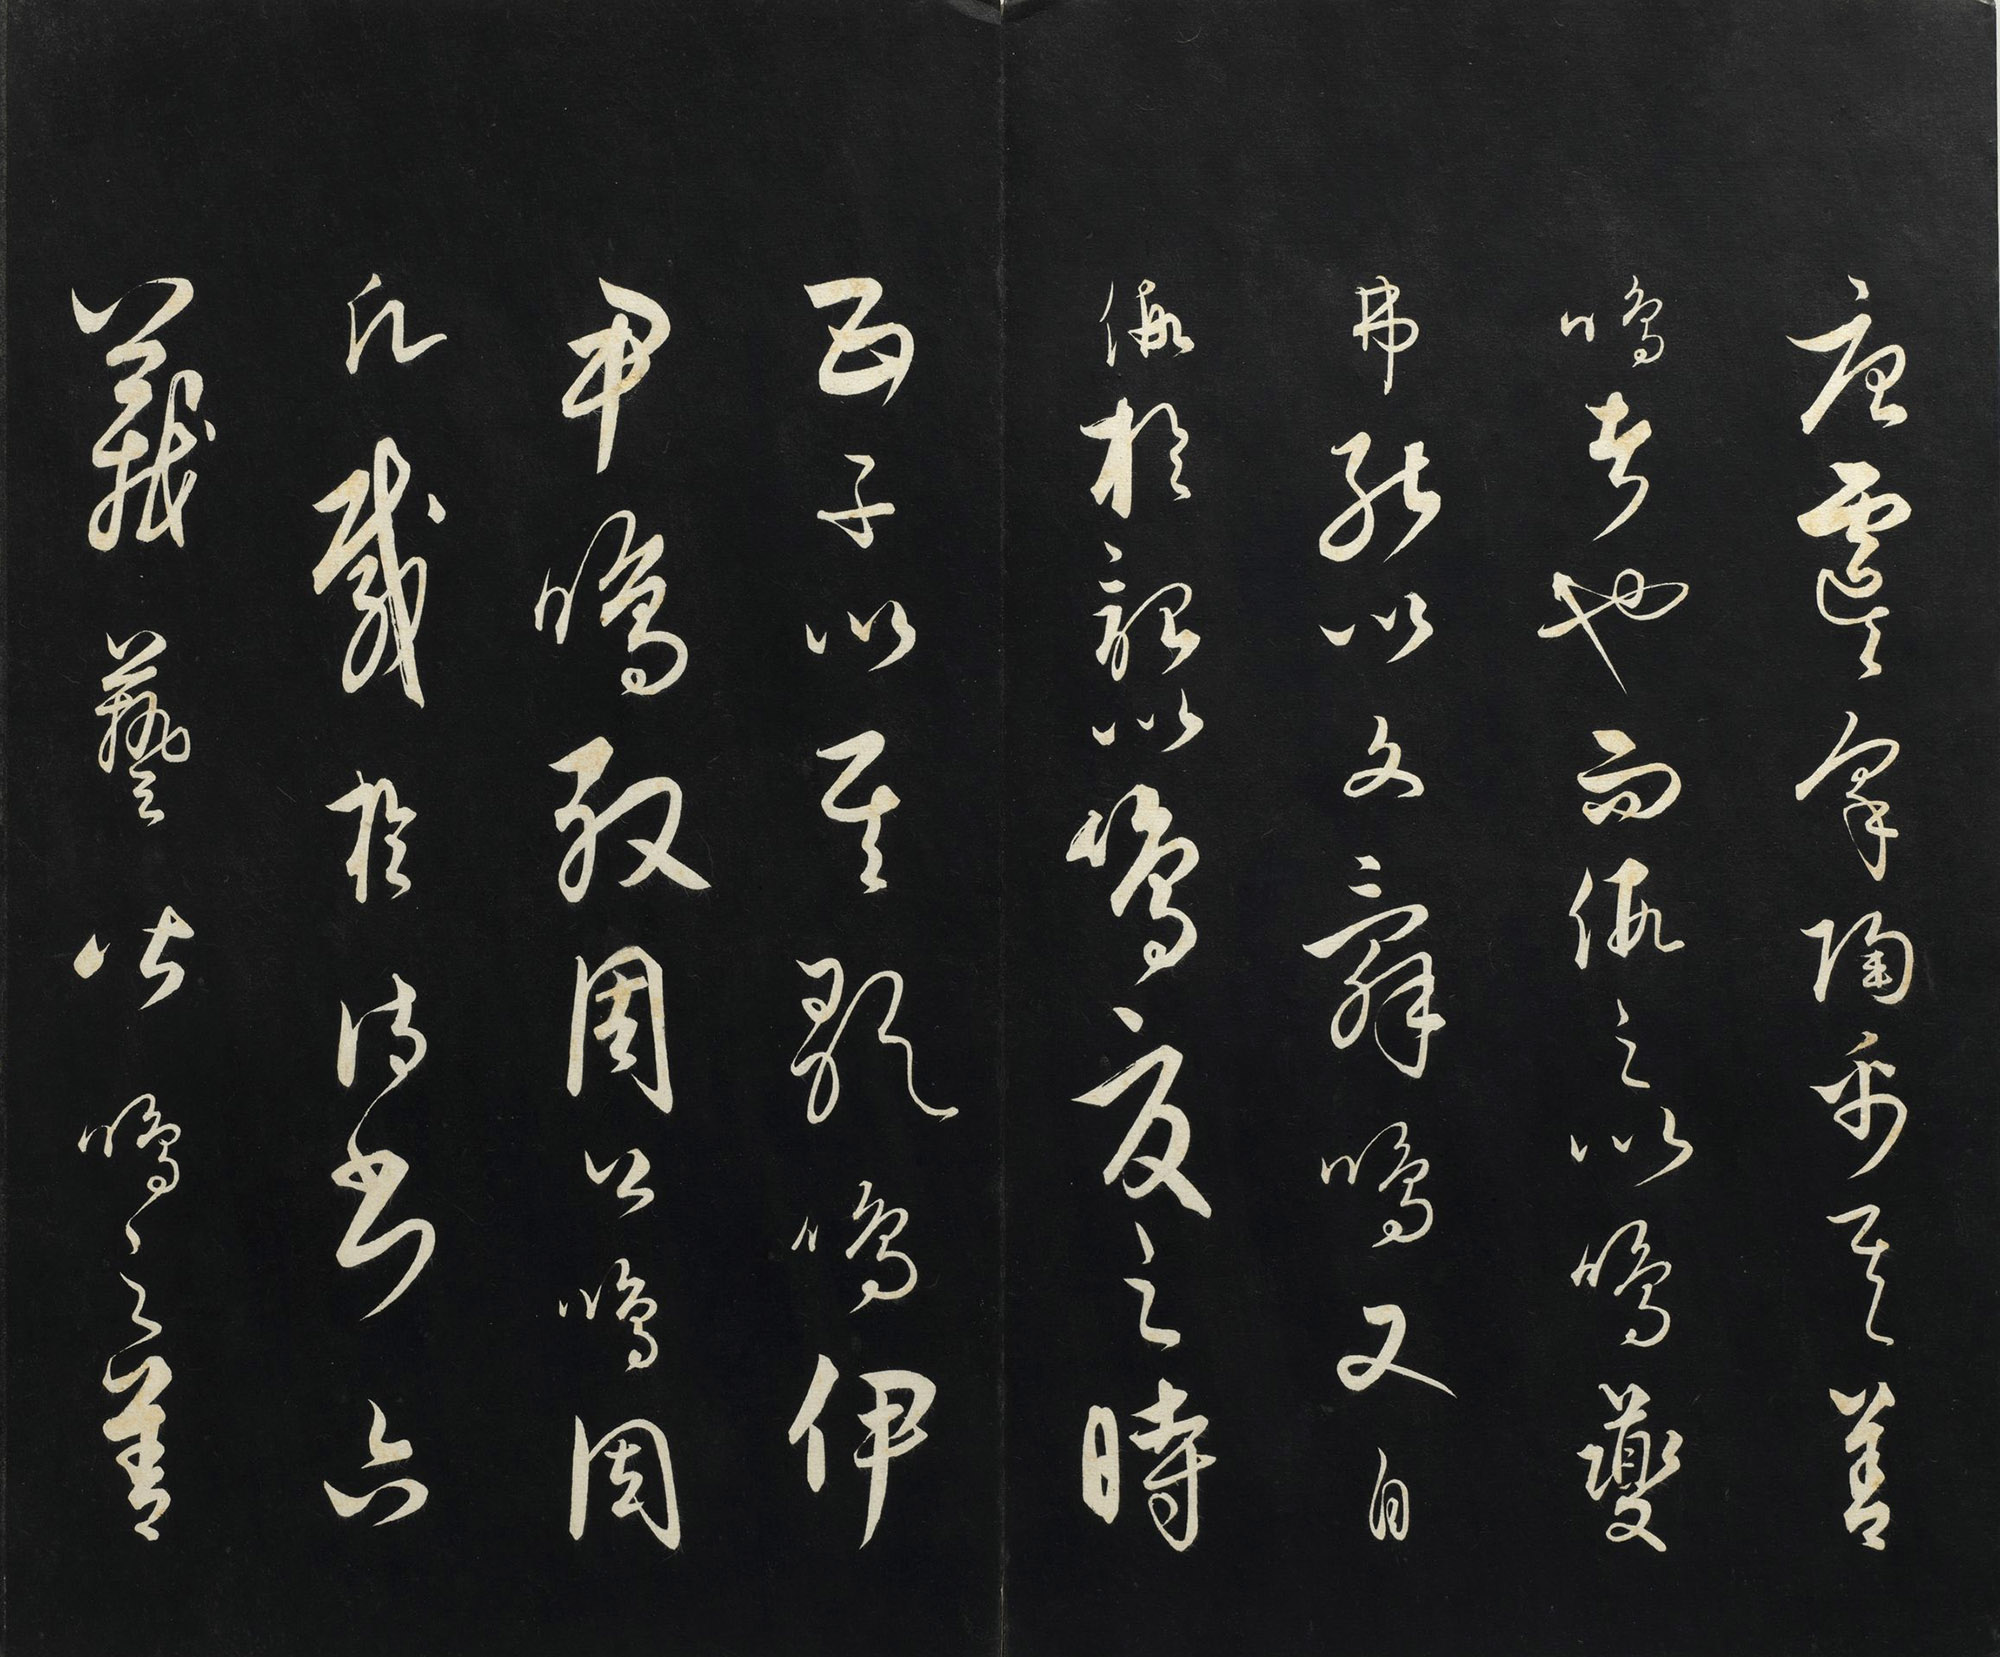 唐虞咎陶禹其善
鳴者也而假之以鳴夔
弗能以文辭鳴又自
假於韶以鳴夏之時
五子以其歌鳴伊
尹鳴殷周公鳴周
凡載於詩書六
藝皆鳴之善